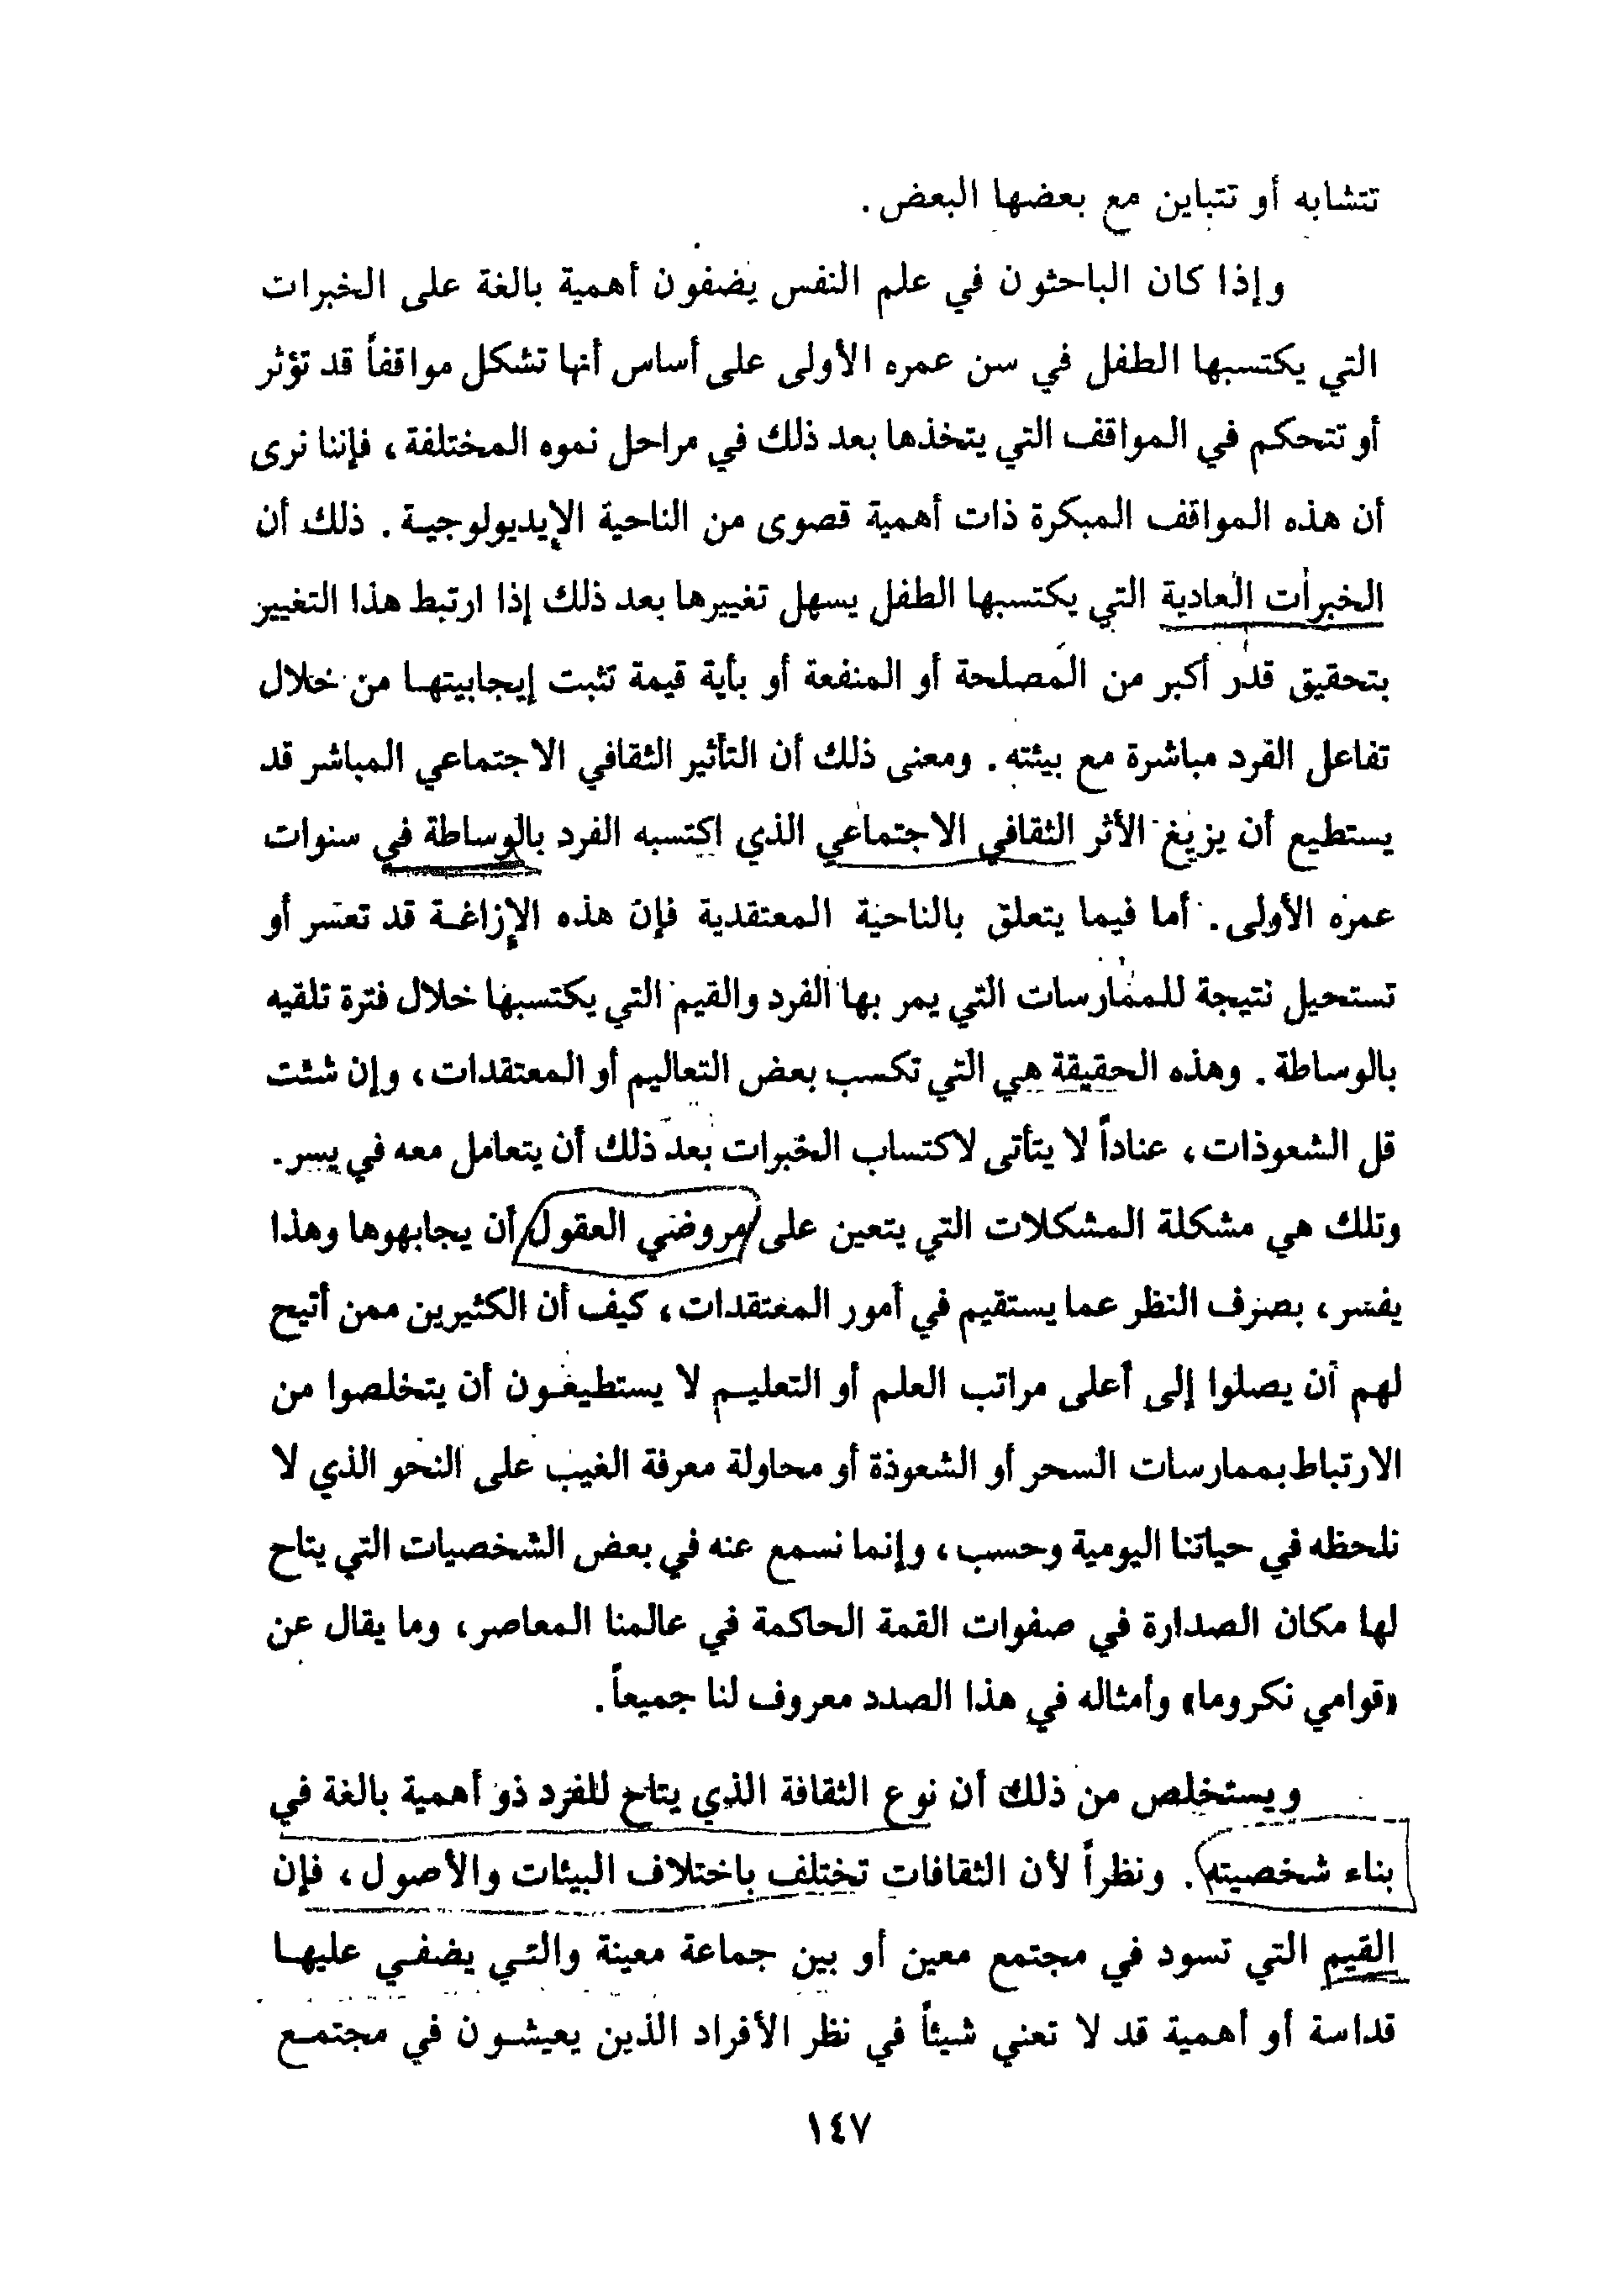 تتشابه أو تتباين مع بعضها البعض.
وإذا كان الباحثون في علم النفس يضفون أهمية بالغة على الخبرات
التي يكتسبها الطفل في سن عمره الأولى على أساس أنها تشكل مواقفاً قد تؤثر
أو تتحكم في المواقف التي يتخذها بعد ذلك في مراحل نموه المختلفة، فإننا نرى
أن هذه المواقف المبكرة ذات أهمية قصوى من الناحية الإيديولوجية. ذلك أن
الخبرات العادية التي يكتسبها الطفل يسهل تغييرها بعد ذلك إذا ارتبط هذا التغيير
بتحقيق قدر أكبر من المصلحة أو المنفعة أو بأية قيمة تثبت إيجابيتها من خلال
تفاعل الفرد مباشرة مع بيئته. ومعنى ذلك أن التأثير الثقافي الاجتماعي المباشر قد
يستطيع أن يزيغ الأثر الثقافي الاجتماعي الذي اكتسبه الفرد بالوساطة في سنوات
عمره الأولى. أما فيما يتعلق بالناحية المعتقدية فإن هذه الإزاغة قد تعسر أو
تستحيل نتيجة للممارسات التي يمر بها الفرد والقيم التي يكتسبها خلال فترة تلقيه
بالوساطة. وهذه الحقيقة هي التي تكسب بعض التعاليم أو المعتقدات، وإن شئت
قل الشعوذات، عناداً لا يتأتى لاكتساب الخبرات بعد ذلك أن يتعامل معه في يسر.
وتلك هي مشكلة المشكلات التي يتعين على مروضي العقول أن يجابهوها وهذا
يفسر، بصرف النظر عما يستقيم في أمور المعتقدات، كيف أن الكثيرين ممن أتيح
لهم أن يصلوا إلى أعلى مراتب العلم أو التعليم لا يستطيعون أن يتخلصوا من
الارتباط بممارسات السحر أو الشعوذة أو محاولة معرفة الغيب على النحو الذي لا
نلحظه في حياتنا اليومية وحسب، وإنما نسمع عنه في بعض الشخصيات التي يتاح
لها مكان الصدارة في صفوات القمة الحاكمة في عالمنا المعاصر، وما يقال عن
«قوامي نكروما» وأمثاله في هذا الصدد معروف لنا جميعاً.
ويستخلص من ذلك أن نوع الثقافة الذي يتاح للفرد ذو أهمية بالغة في
بناء شخصيته. ونظراً لأن الثقافات تختلف باختلاف البيئات والأصول، فإن
القيم التي تسود في مجتمع معين أو بين جماعة معينة والتي يضفي عليها
قداسة أو أهمية قد لا تعني شيئاً في نظر الأفراد الذين يعيشون في مجتمع
١٤٧